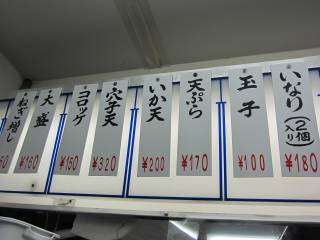 いなり(2個入り)
¥180
玉子
¥100
天ぷら
¥170
いか天
¥200
穴子天
¥320
コロッケ
¥150
大盛
ねぎ増し